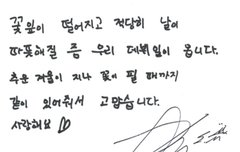 꽃잎이 떨어지고 적당히 날이
따뜻해질 쯤 우리 데뷔일이 옵니다.
추운 겨울이 지나 꽃이 필 때까지
같이 있어줘서 고맙습니다.
사랑해요 ♡